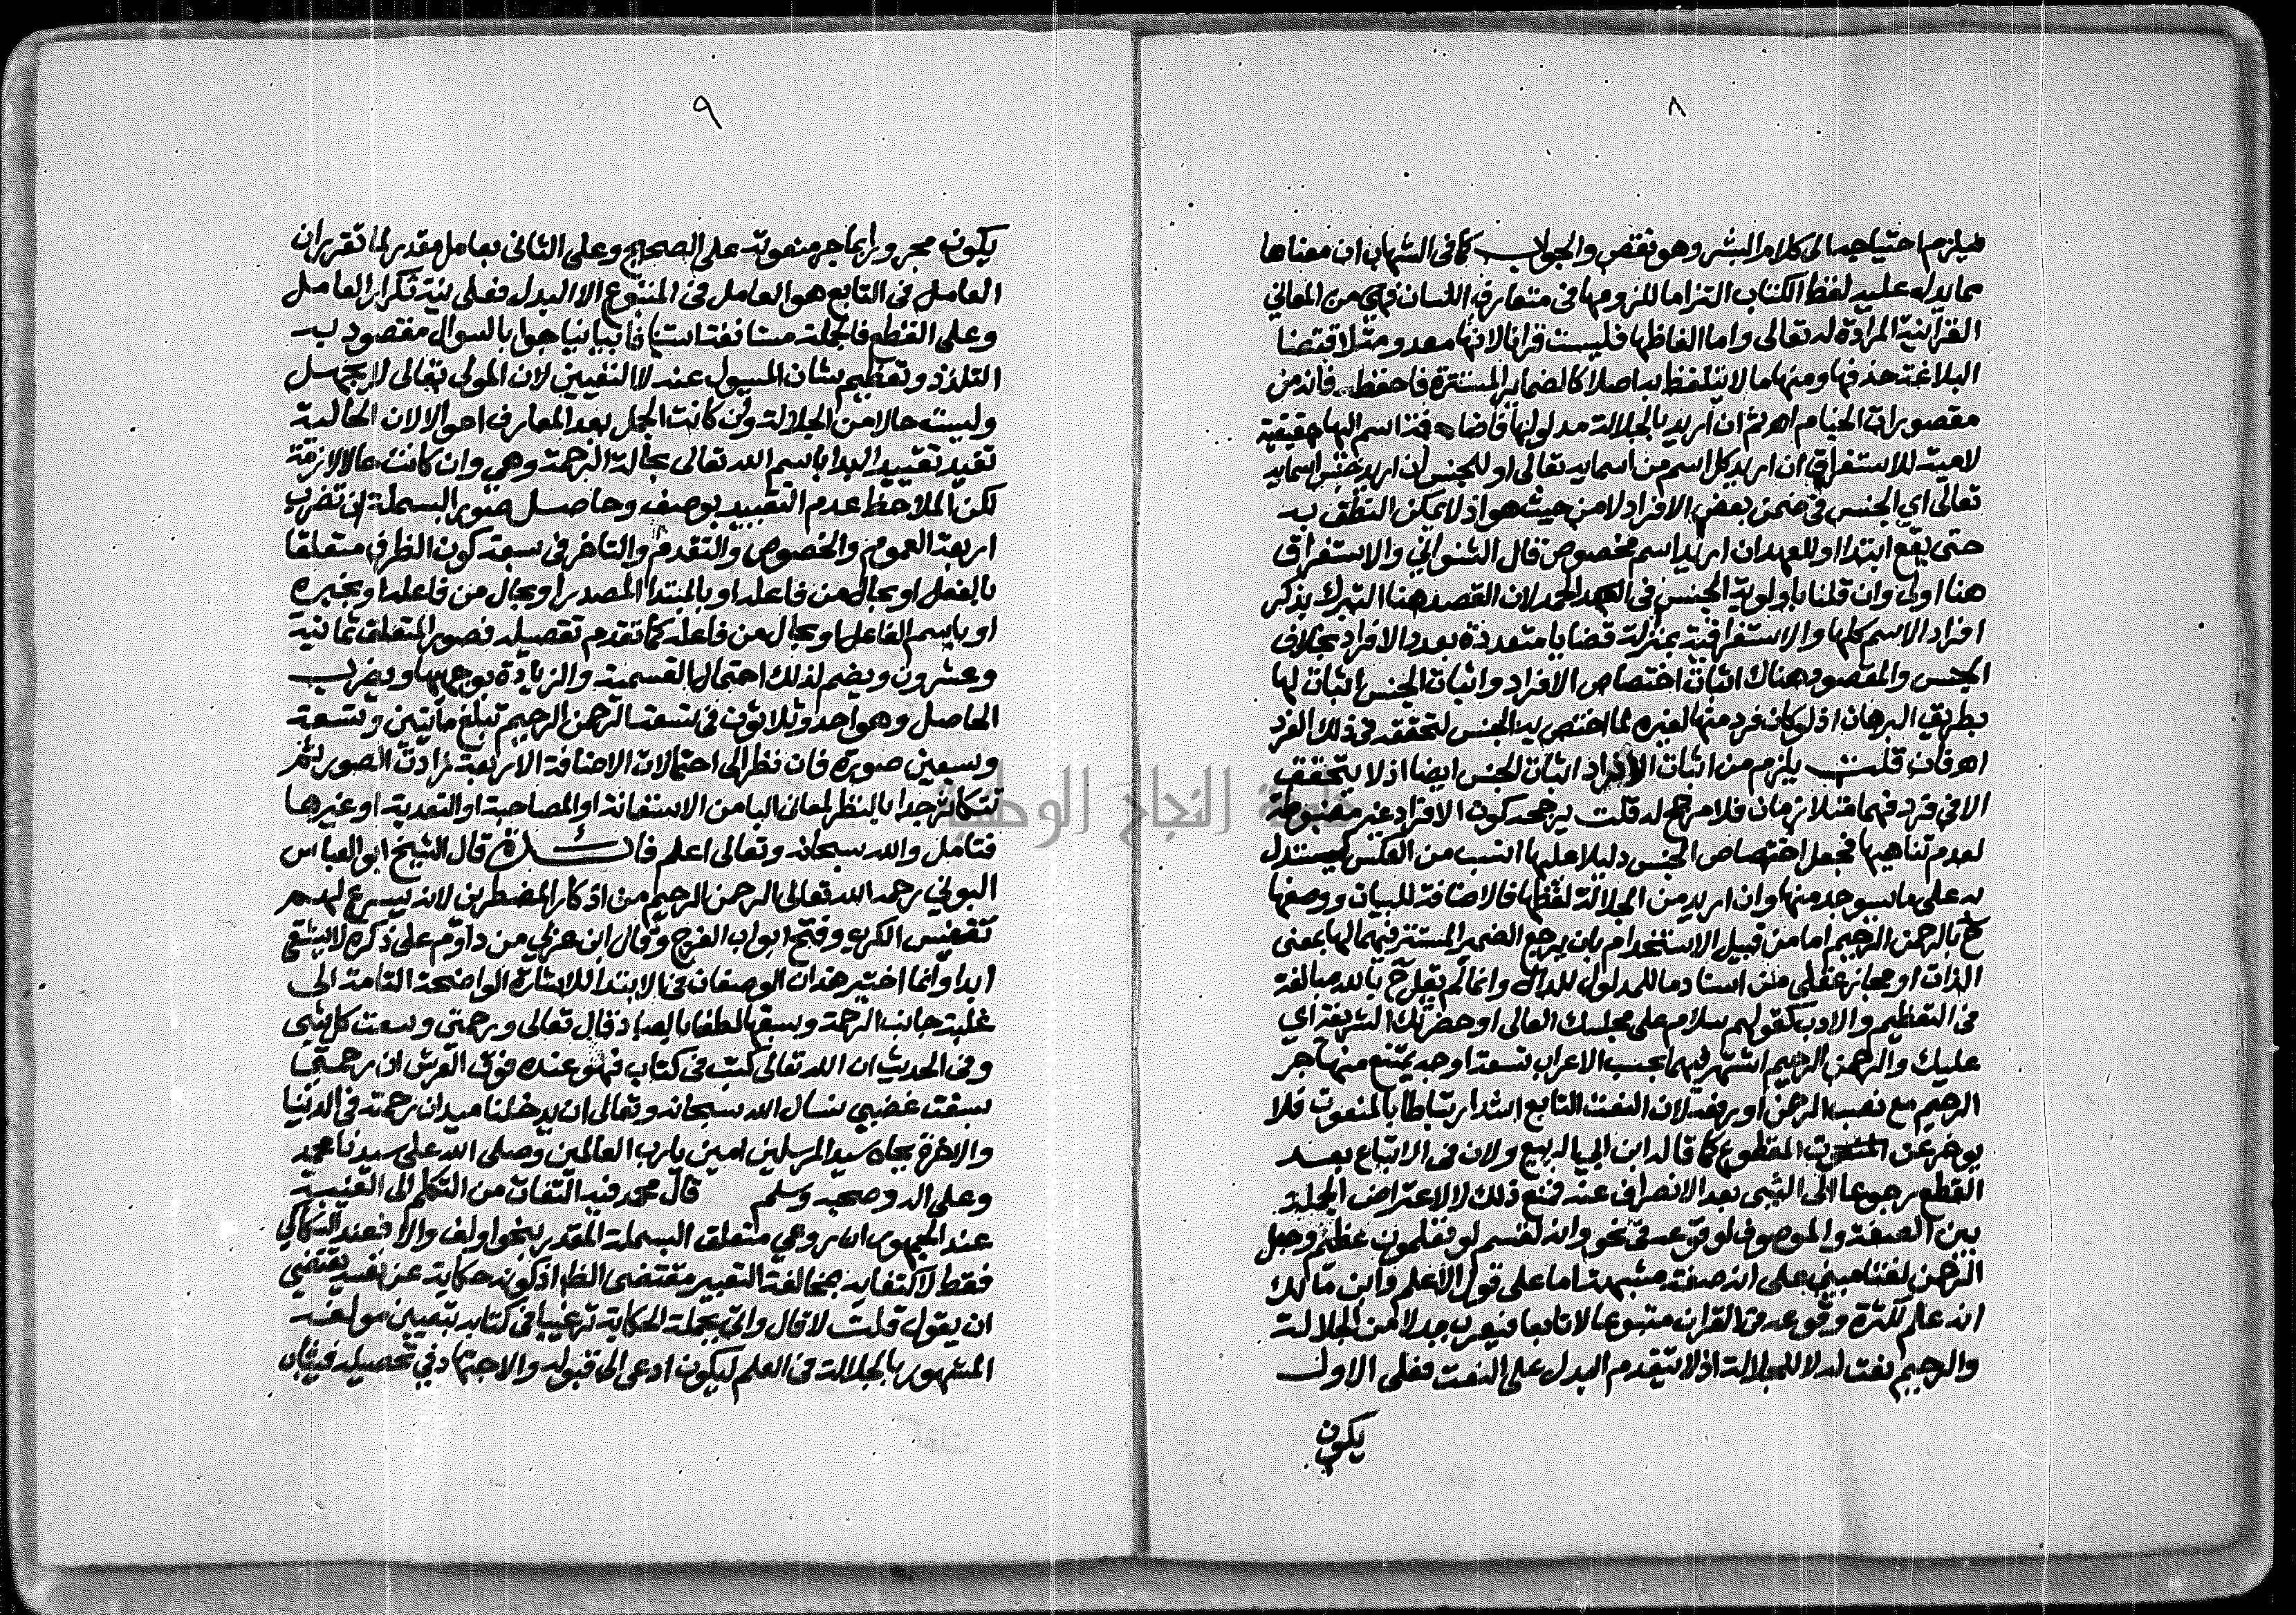 ٨
فيلزم احتياجه الى كلام البشر وهو نقص والجواب كما فى الشهاب ان معناها
مما يدل عليه لفظ الكتاب التزاما للزومها فى متعارف اللسان فهي من المعاني
القرانية المرادة له تعالى واما الفاظها فليست قرانا لانها معدومة لاقتضا
البلاغة حذفها ومنها ما لا يتلفظ به اصلا كالضماير المستترة فاحفظه فانه من
مقصورات الخيام اهـ ثم ان اريد بالجلالة مدلولها فاضافة اسم اليها حقيقية
لامية للاستغراق ان اريد كل اسم من اسمايه تعالى او للجنس ان اريد جنس اسمايه
تعالى اي الجنس فى ضمن بعض الافراد لا من حيث هو اذ لا يمكن النطق به
حتى يقع ابتدا او للعهد ان اريد اسم مخصوص قال الشنواني والاستغراق
هنا اولى وان قلنا باولوية الجنس فى الحمد لان القصد هنا التبرك بذكر
افراد الاسم كلها والاستغراقية بمنزلة قضايا متعددة بعدد الافراد بخلاف
الجنس والمقصود هناك اثبات اختصاص الافراد واثبات الجنس اثبات لها
بطريق البرهان اذ لو كان فرد منها لغيره لما اختص به الجنس لتحققه فى ذلك الفرد
اهـ فان قلت يلزم من اثبات الافراد اثبات الجنس ايضا اذ لا يتحقق
الا فى فرد فهما متلازمان فلا مرجح له قلت يرجحه كون الافراد غير مضبوطة
لعدم تناهيها فجعل اختصاص الجنس دليلا عليها انسب من العكس ليستدل
به على ما سيوجد منها وان اريد من الجلالة لفظها فالاضافة للبيان ووصفها
ح بالرحمن الرحيم اما من قبيل الاستخدام بان يرجع الضمير المستتر فيهما لها بمعنى
الذات او مجاز عقلى من اسناد ما للمدلول للدال وانما لم يقل ح بالله مبالغة
فى التعظيم والادب كقولهم سلام على مجلسك العالى او حضرتك الشريفة اي
عليك والرحمن الرحيم اشتهر فيهما بحسب الاعراب تسعة اوجه يمتنع منها جر
الرحيم مع نصب الرحمن او رفعه لان النعت التابع اشد ارتباطا بالمنعوت فلا
يوخر عن المقطوع كما قاله ابن ابي الربيع ولان فى الاتباع بعد
القطع رجوعا الى الشى بعد الانصراف عنه فمنع ذلك لا لاعتراض الجملة
بين الصفة والموصوف لوقوعه فى نحو وانه لقسم لو تعلمون عظيم وجعل
الرحمن نعتا مبني على انه صفة مشبهة اما على قول الاعلم وابن مالك
انه علم لكثرة وقوعه فى القران متبوعا لا تابعا فيعرب بدلا من الجلالة
والرحيم نعت له لا للجلالة اذ لا يتقدم البدل على النعت فعلى الاول
يكون
٩
يكون مجرورا بما جر منعوته على الصحيح وعلى الثانى بعامل مقدر لما تقرر ان
العامل فى التابع هو العامل فى المتبوع الا البدل فعلى نية تكرار العامل
وعلى القطع فالجملة مستانفة استينافا بيانيا جوابا لسوال مقصود به
التلذذ وتعظيم شان المسيول عنه لا التعيين لان المولى تعالى لا يجهل
وليست حالا من الجلالة وان كانت الجمل بعد المعارف احوالا لان الحالية
تفيد تقييد البدا باسم الله تعالى بحالة الرحمة وهي وان كانت حالا لازمة
لكن الملاحظ عدم التقييد بوصف وحاصل صور البسملة ان تضرب
اربعة العموم والخصوص والتقدم والتاخر فى سبعة كون الظرف متعلقا
بالفعل او بحال من فاعله او بالمبتدا المصدر او بحال من فاعله او بخبره
او باسم الفاعل او بحال من فاعله كما تقدم تفصيله فصور المتعلق ثمانية
وعشرون ويضم لذلك احتمالها القسمية والزيادة بوجهيها ويضرب
الحاصل وهو احد وثلاثون فى تسعة الرحمن الرحيم تبلغ مايتين وتسعة
وسبعين صورة فان نظر الى احتمالات الاضافة الاربعة زادت الصور ثم
تتكاثر جدا بالنظر لمعانى البا من الاستعانة او المصاحبة او التعدية او غيرها
فتامل والله سبحانه وتعالى اعلم فائدة قال الشيخ ابو العباس
البوني رحمه الله تعالى الرحمن الرحيم من اذكار المضطرين لانه يسرع لهم
تنفيس الكرب وفتح ابواب الفرج وقال ابن عربي من داوم على ذكره لا يشقى
ابدا وانما اختير هذان الوصفان فى الابتدا للاشارة الواضحة التامة الى
غلبة جانب الرحمة وسبقها لطفا بالعباد قال تعالى ورحمتى وسعت كل شى
وفى الحديث ان الله تعالى كتب فى كتاب فهو عنده فوق العرش ان رحمتى
سبقت غضبي نسال الله سبحانه وتعالى ان يدخلنا ميدان رحمته فى الدنيا
والاخرة بجاه سيد المرسلين امين يا رب العالمين وصلى الله على سيدنا محمد
وعلى اله وصحبه وسلم قال محمد فيه التفات من التكلم الى الغيبة
عند الجمهور ان روعي متعلق البسملة المقدر بنحو اولف والا فعند السكاكي
فقط لاكتفايه بمخالفة التعبير مقتضى الظاهر اذ كونه حكاية عن نفسه يقتضي
ان يقول قلت لا قال واتى بجملة الحكاية ترغيبا فى كتابه بتعيين مولفه
المشهور بالجلالة فى العلم ليكون ادعى الى قبوله والاجتهاد في تحصيله فيثاب
جامعة النجاح الوطنية